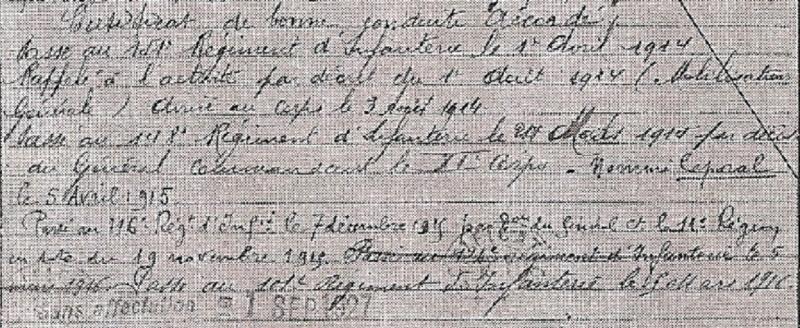 Certificat de bonne conduite "Accordé"
Passé au 101e Régiment d'Infanterie le 1er Avril 1914
Rappelé à l'activité par décret du 1er Août 1914 (Mobilisation
Générale) Arrivé au corps le 3 août 1914
Passé au 148e Régiment d'Infanterie le Mars 191 par décis
du Général commandant le Corps - Nommé Caporal
le 5 Avril 1915
Passé au 116e Régt d'Infie le 7 décembre 1915 par du Général ct le 11e Région
en date du 19 novembre 1915 Passé au Régiment d'Infanterie le 5
mars 1916 Passé au 101e Régiment d'Infanterie le 15 Mars 1916.
sans affectation = 1 SEP 1927